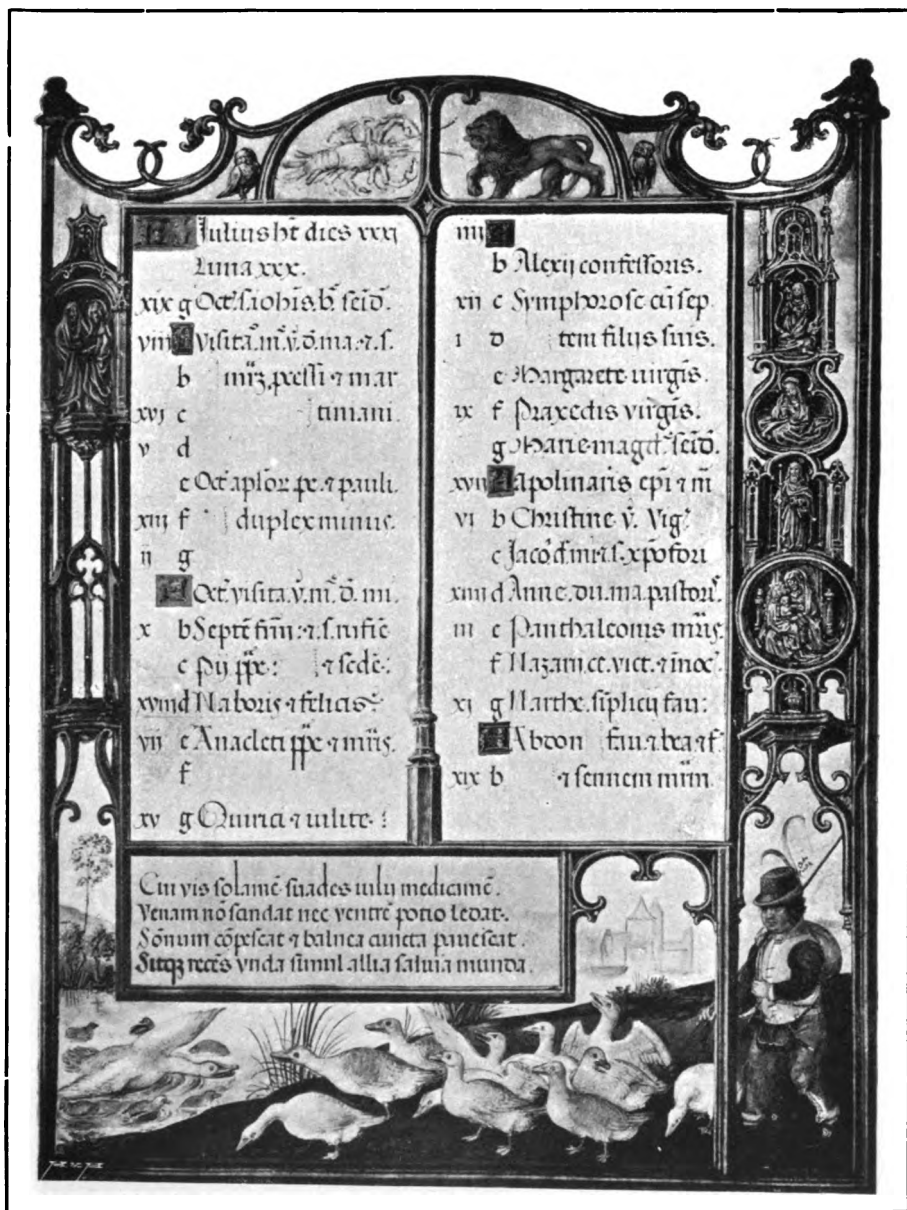 KL Julius ht̄ dies xxxj
Luna xxx.
xix g Octͣ. s. iohīs. b. seīd.
viii A Visitā. m. v̄. d̄. ma. ⁊ s.
b mr̄ꝫ. pcessi ⁊ mar
xvj c tiniani.
v d
e Octͣ aplor̄ pe. ⁊ pauli.
xiii f duplex minus.
ii g
A Octͣ. visita. v̄. m̄. d̄. mi.
x b Septē frm̄: ⁊ s. rufine
c Pij pp̄e: ⁊ secd̄e:
xviii d Naboris ⁊ felicis
vii e Anacleti pp̄e ⁊ mr̄is.
f
xv g Quirici ⁊ iulite:
iiii A
b Alexij confessoris.
xii c Symphorose cū sep
i d tem filijs suis.
e Margarete uirgīs.
ix f Praxedis virgīs.
g Marie magd̄. seīd.
xvii A Apolinaris epī ⁊ m̄
vi b Christine v̄. Vig.
c Jaco. d. mr̄. ⁊ s. xp̄ofori
xiiii d Anne. dn̄. ma. pastoris.
iii e Panthaleonis mr̄is.
f Nazarii. ce. vict. ⁊ īnoc
xj g Marthe. sīplicij fau:
A Abdon fau. ⁊ bea. ⁊ f.
xix b ⁊ sennem mr̄m
Cui vis solamē suades iulij medicamē.
Venam nō scindat nec ventrē potio ledat.
Sōnum cōpescat ⁊ balnea cuncta pauescat.
Sitqꝫ recēs vnda simul allia saluia munda.